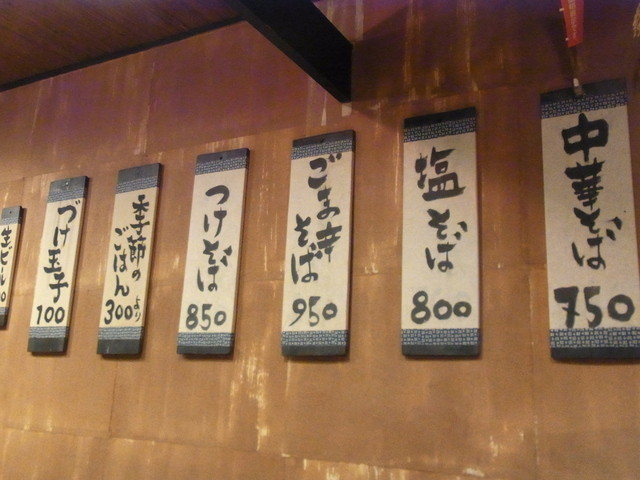 中華そば
750
塩そば
800
ごま辛
そば
950
つけそば
850
季節の
ごはん
300より
づけ玉子
100
生ビール